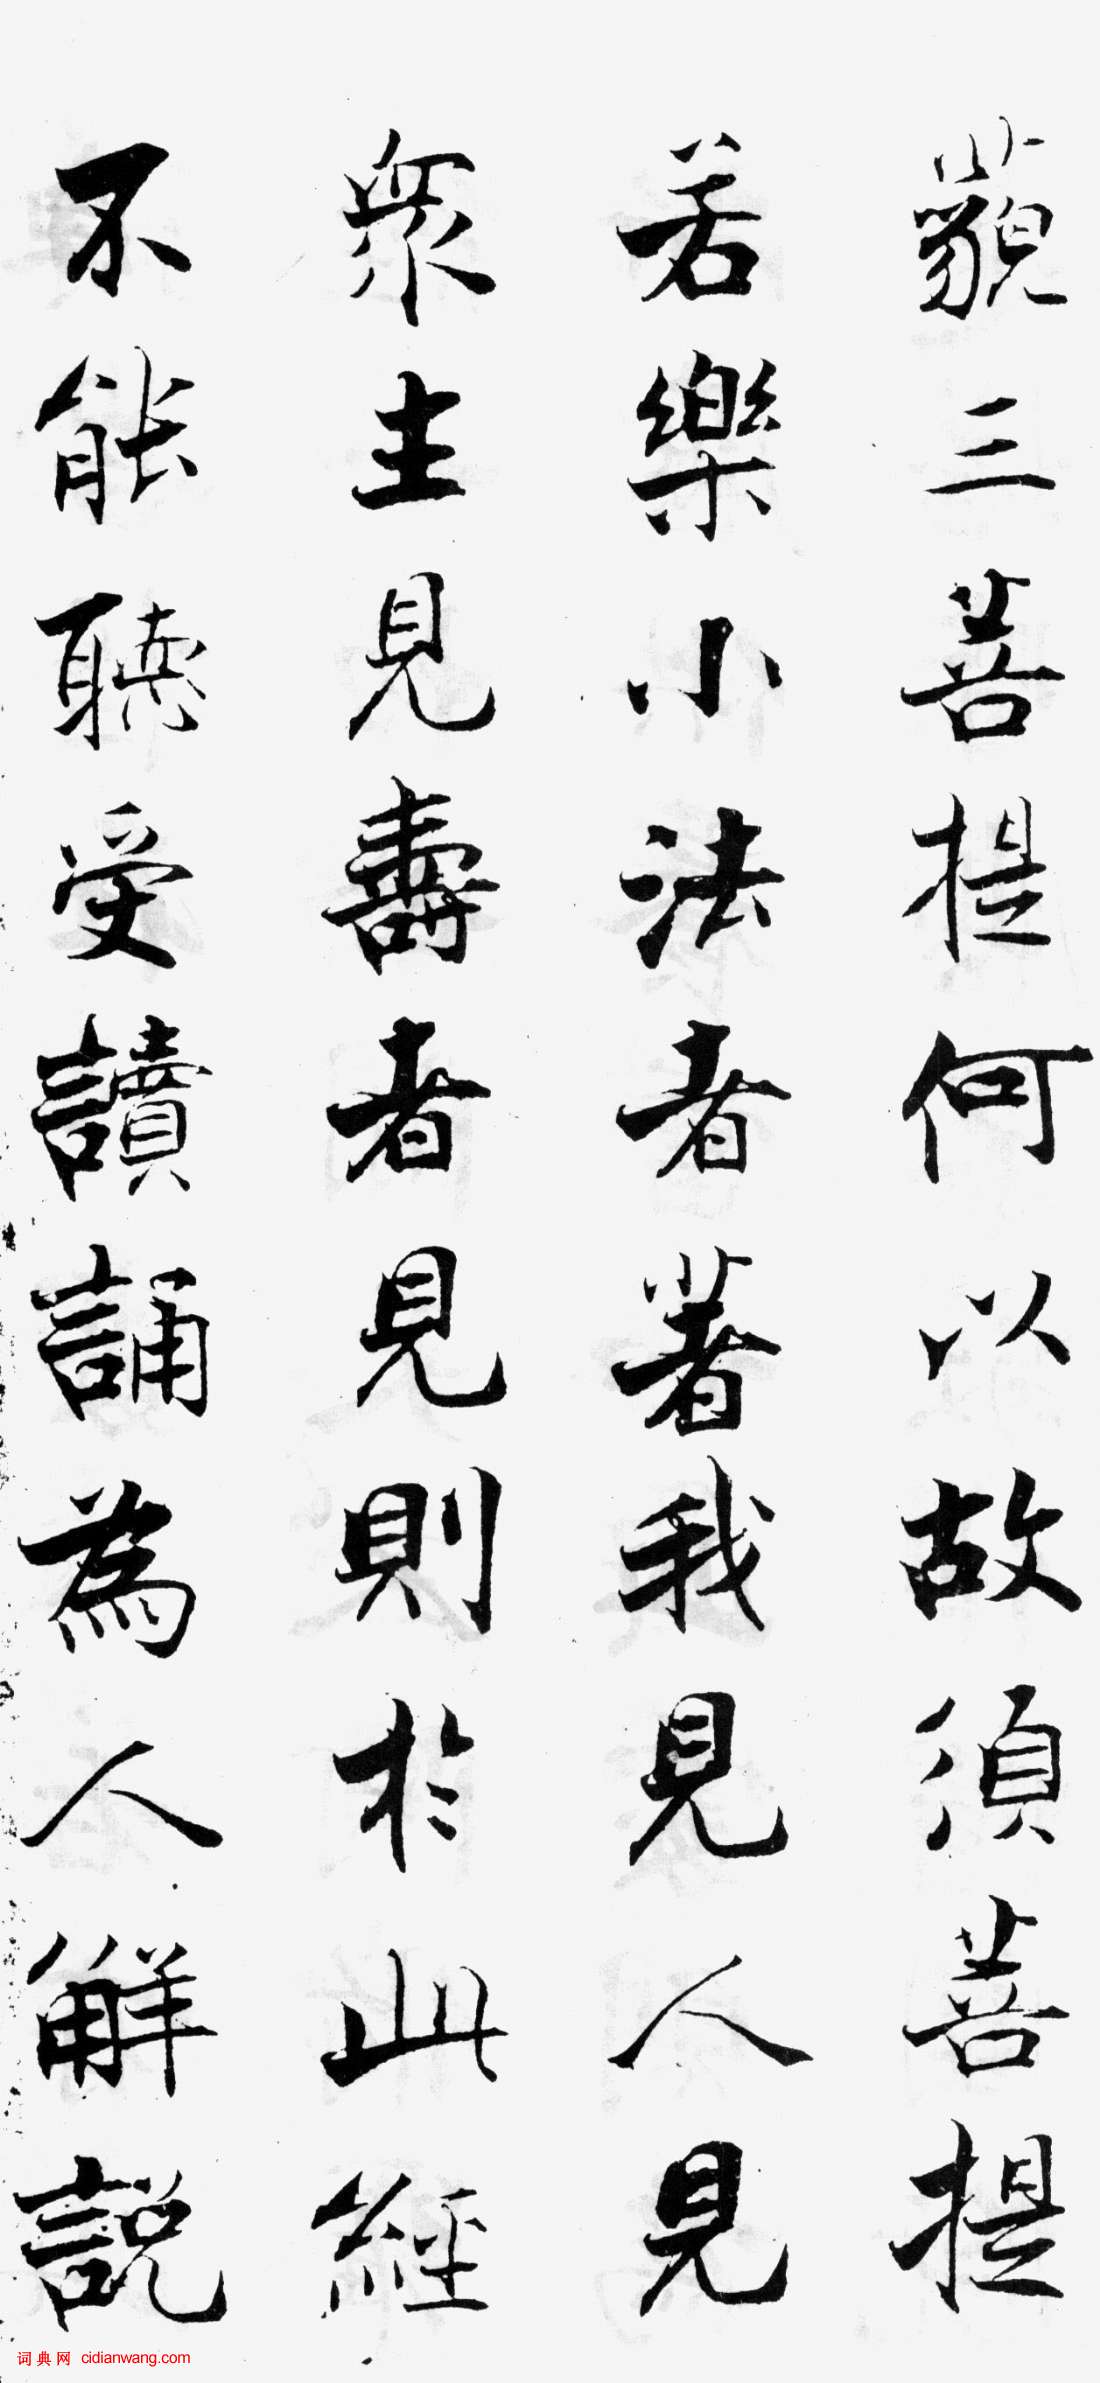 藐三菩提何以故須菩提
若樂小法者著我見人見
眾生見壽者見則於此經
不能聽受讀誦為人解説
词典网 cidianwang.com